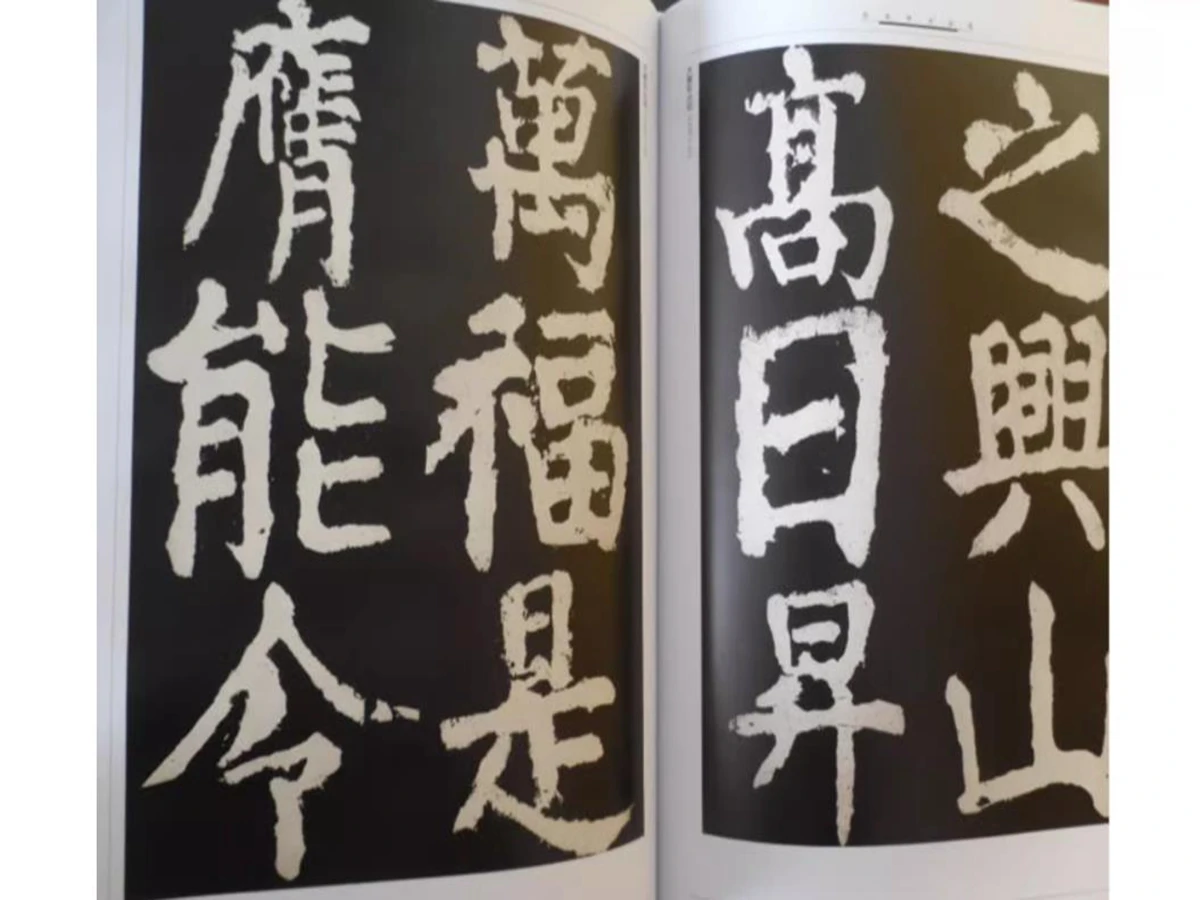 之興山
高日昇
萬福是
膺能令